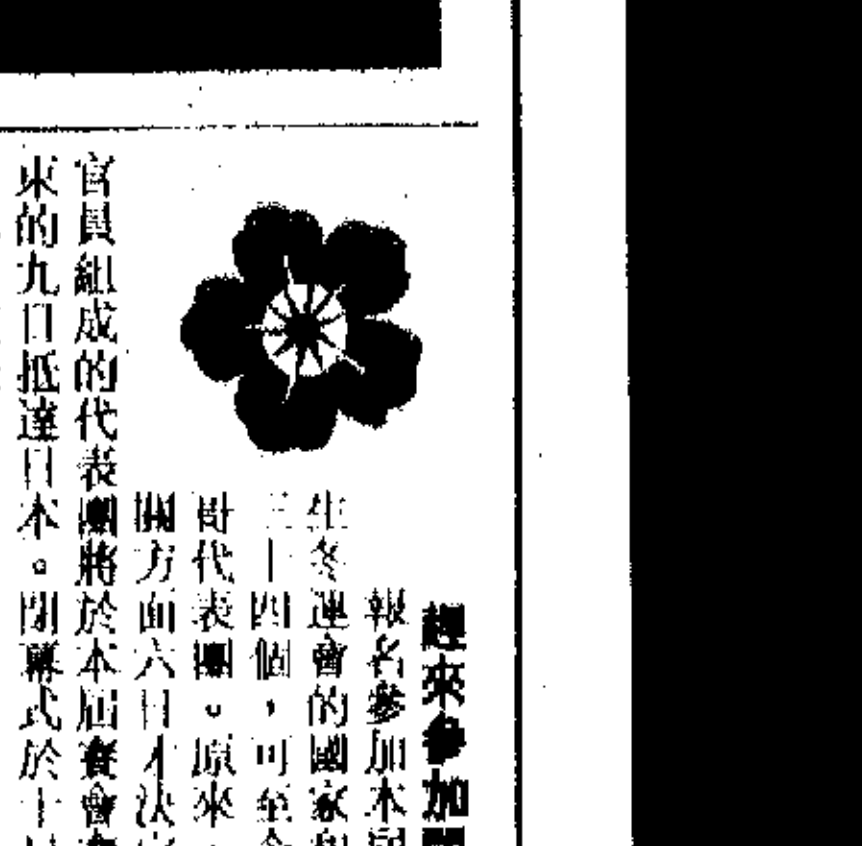 趕來參加
報名參加本屆
生冬運會的國家和
三十四個，可至今
哥代表團。原來，
關方面六日才決定
官員組成的代表團將於本屆賽會
東的九日抵達日本。閉幕式於十